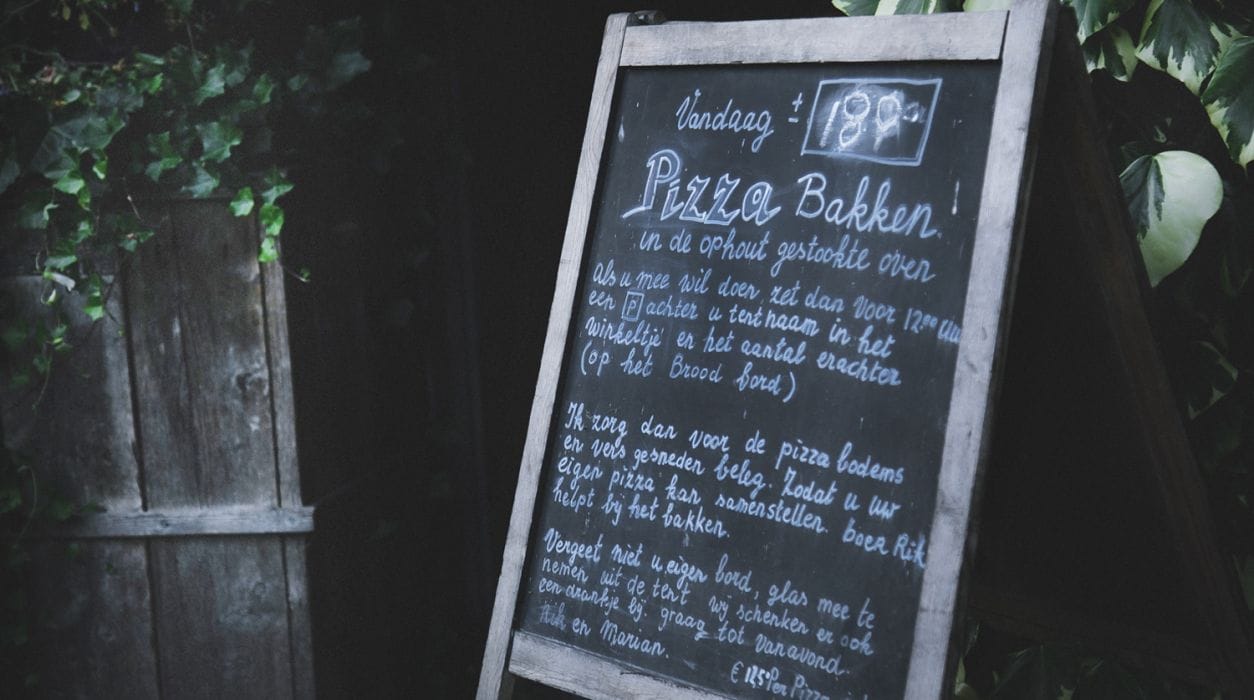 Vandaag ±
Pizza Bakken.
in de ophout gestookte oven
Als u mee wil doen, zet dan voor 12⁰⁰ uu
een P achter u tent naam in het
winkeltje en het aantal erachter
(op het Brood bord)
Ik zorg dan voor de pizza bodems
en vers gesneden beleg. Zodat u uw
eigen pizza kan samenstellen. boer Rik
helpt bij het bakken.
Vergeet niet u eigen bord, glas mee te
nemen uit de tent wij schenken er ook
een drankje bij graag tot vanavond.
Rik en Marian.
Per Pizza